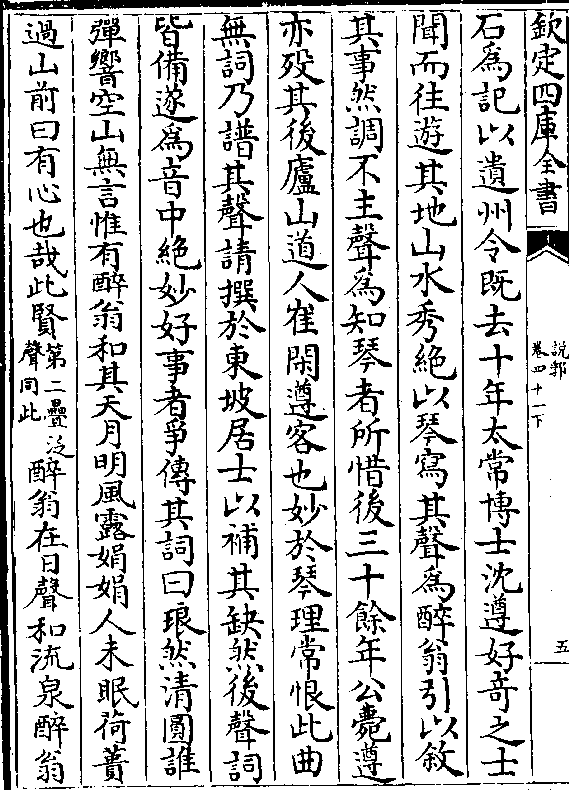 欽定四庫全書
說郛
卷四十一下
五
石為記以遺州令既去十年太常博士沈遵好奇之士
聞而往遊其地山水秀絶以琴寫其聲為醉翁引以敘
其事然調不主聲為知琴者所惜後三十餘年公薨遵
亦歿其後廬山道人崔閑遵客也妙於琴理常恨此曲
無詞乃譜其聲請撰於東坡居士以補其缺然後聲詞
皆備遂為音中絶妙好事者爭傳其詞曰琅然清圓誰
彈響空山無言惟有醉翁和其天月明風露娟娟人未眠荷蕢
過山前曰有心也哉此賢第二疊泛聲同此醉翁在日聲和流泉醉翁